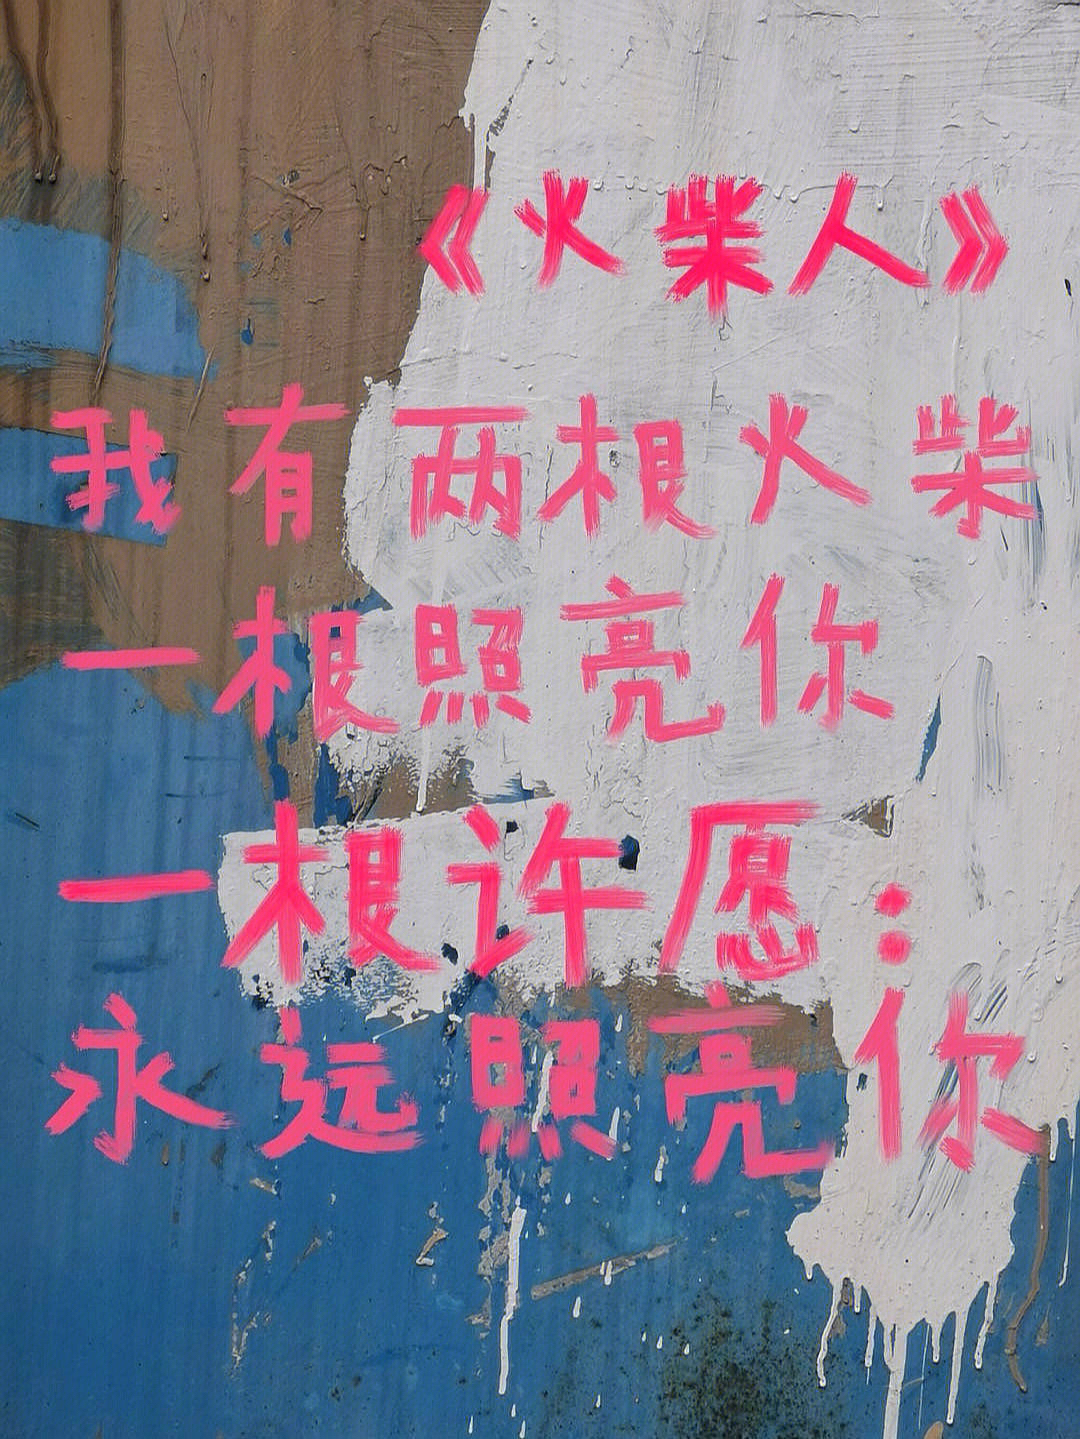 《火柴人》
我有两根火柴
一根照亮你
一根许愿：
永远照亮你